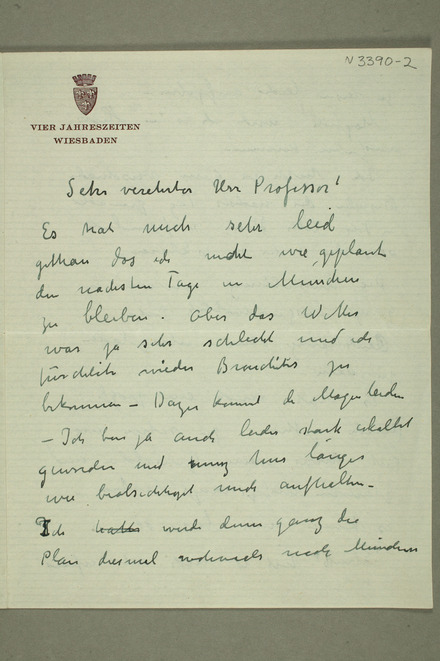 N 3390-2
VIER JAHRESZEITEN
WIESBADEN
Sehr verehrter Herr Professor!
Es hat mich sehr leid
gethan das ich nicht wie geplant
die nächsten Tage in München
zu bleiben. Aber das Wetter
war ja sehr schlecht und ich
fürchtete wieder Bronchitis zu
bekommen – Dazu kommt die Magen
– Ich bin ja auch leider stark erkältet
geworden und muss hier länger
wie beabsichtigt mich aufhalten –
Ich werde denn ganz die
Plan diesmal nach München